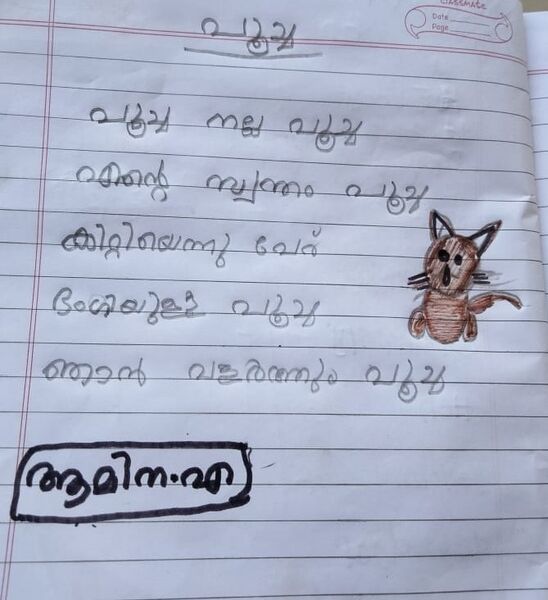 classmate
Date
Page
പൂച്ച
പൂച്ച നല്ല പൂച്ച
എന്റെ സ്വന്തം പൂച്ച
കിറ്റിയെന്നു പേര്
ഭംഗിയുള്ള പൂച്ച
ഞാൻ വളർത്തും പൂച്ച
ആമിന.എ